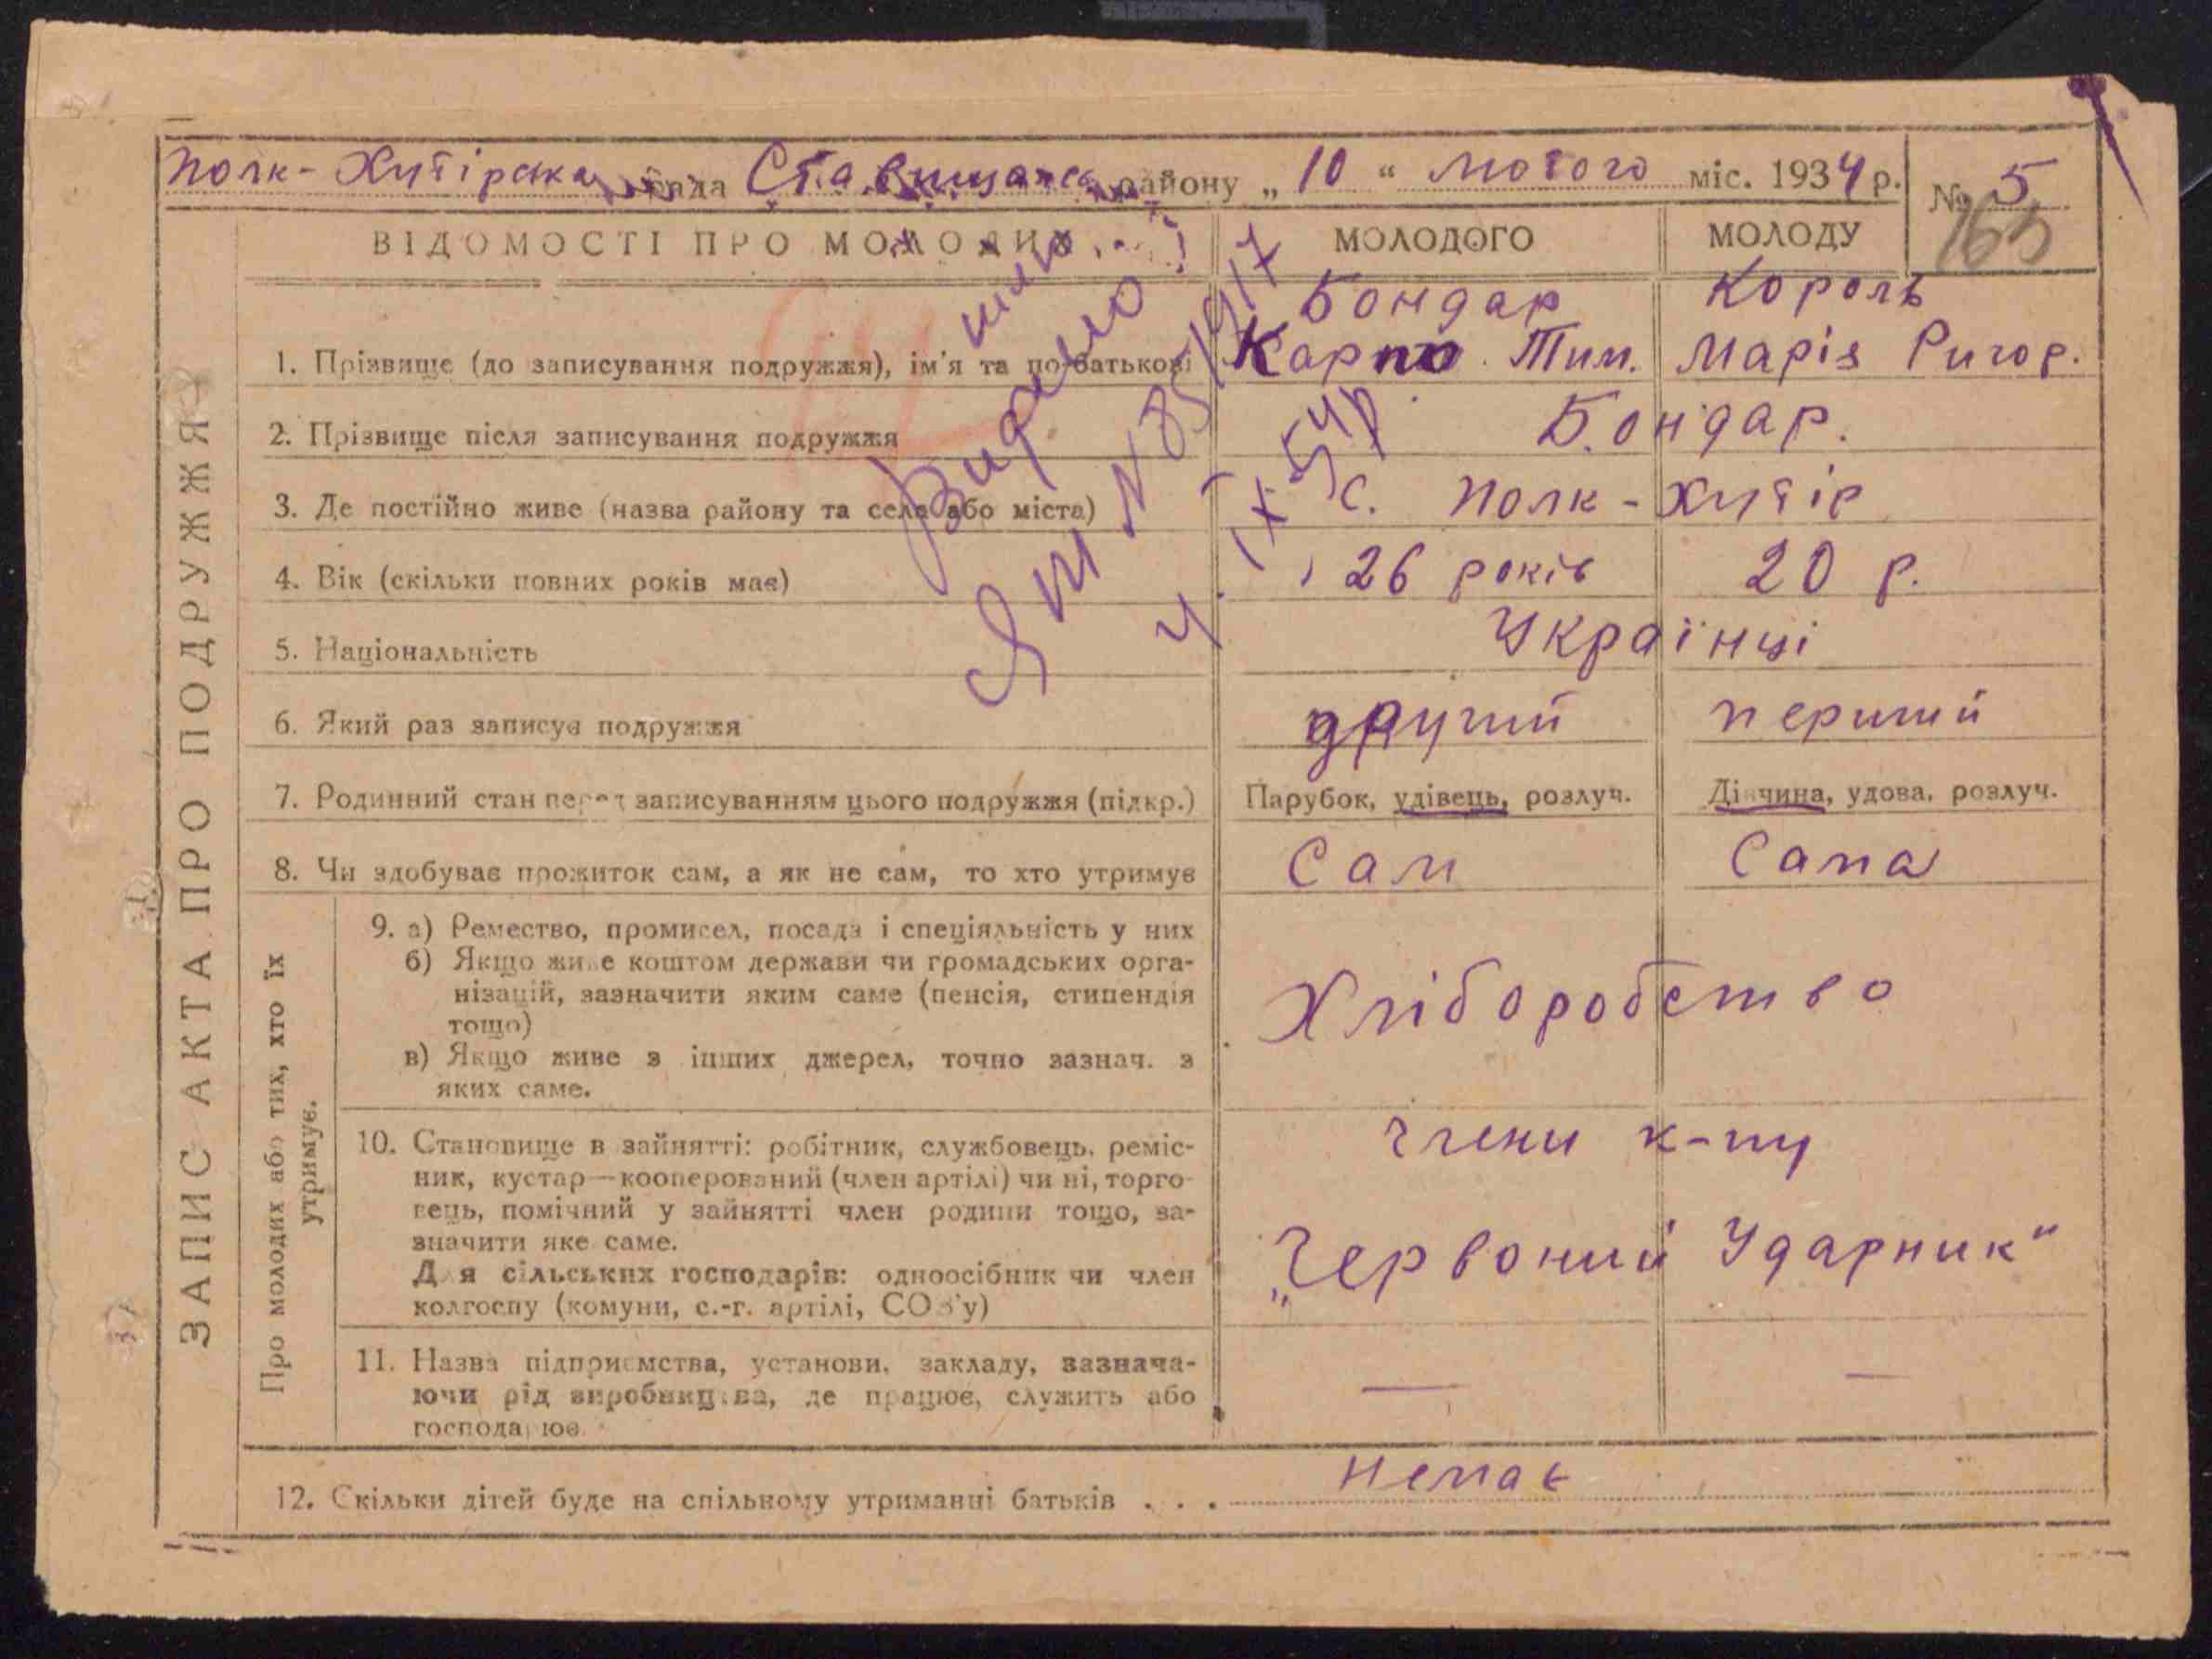 Полк-Хутірська рада Ставищанськ району „10“ лютого міс. 1934 р.
№ 5
165
ВІДОМОСТІ ПРО МОЛОДИХ
МОЛОДОГО
МОЛОДУ
1. Прізвище (до записування подружжя), ім'я та по-батькові
Бондар
Карпо Тим.
Король
Марія Ригор.
2. Прізвище після записування подружжя
Бондар.
3. Де постійно живе (назва району та села або міста)
с. Полк-Хутір
4. Вік (скільки повних років має)
26 років
20 р.
5. Національність
Українці
6. Який раз записує подружжя
другий
перший
7. Родинний стан перед записуванням цього подружжя (підкр.)
Парубок, удівець, розлуч.
Дівчина, удова, розлуч.
8. Чи здобуває прожиток сам, а як не сам, то хто утримує
Сам
Сама
9. а) Ремество, промисел, посада і спеціяльність у них
б) Якщо живе коштом держави чи громадських орга-
нізацій, зазначити яким саме (пенсія, стипендія
тощо)
в) Якщо живе з інших джерел, точно зазнач. з
яких саме.
Хліборобство
10. Становище в зайнятті: робітник, службовець, реміс-
ник, кустар—кооперований (член артілі) чи ні, торго-
вець, помічний у зайнятті член родини тощо, за-
значити яке саме.
Для сільських господарів: одноосібник чи член
колгоспу (комуни, с.-г. артілі, СОЗ'у)
члени к-пу
„Червоний Ударник“
11. Назва підприємства, установи, закладу, зазнача-
ючи рід виробництва, де працює, служить або
господарює.
—
—
12. Скільки дітей буде на спільному утриманні батьків . . .
немає
ЗАПИС АКТА ПРО ПОДРУЖЖЯ
Про молодих або тих, хто їх
утримує.
Видано
4. IX 54р